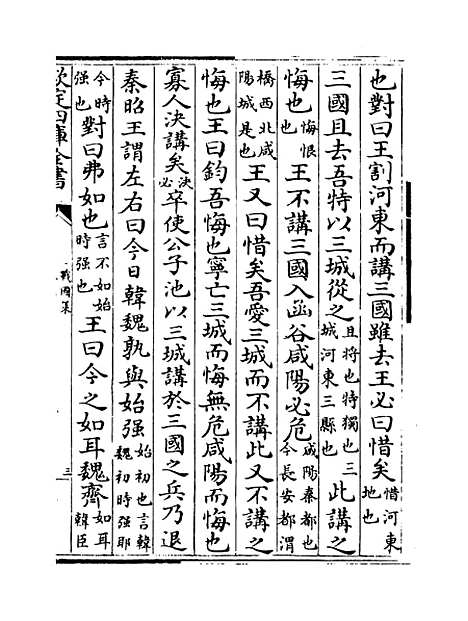 也對曰王割河東而講三國雖去王必曰惜矣惜河東地也
三國且去吾特以三城從之且將也特獨也三城河東三縣也此講之
悔也悔恨也王不講三國入函谷咸陽必危咸陽秦都也今長安都渭
橋西北咸陽城是也王又曰惜矣吾愛三城而不講此又不講之
悔也王曰鈞吾悔也寧亡三城而悔無危咸陽而悔也
寡人決講矣決必卒使公子池以三城講於三國之兵乃退
秦昭王謂左右曰今日韓魏孰與始强始初也言韓魏初時强耶
今時强也對曰弗如也言不如始時强也王曰今之如耳魏齊如耳韓臣
欽定四庫全書
戰國策
三